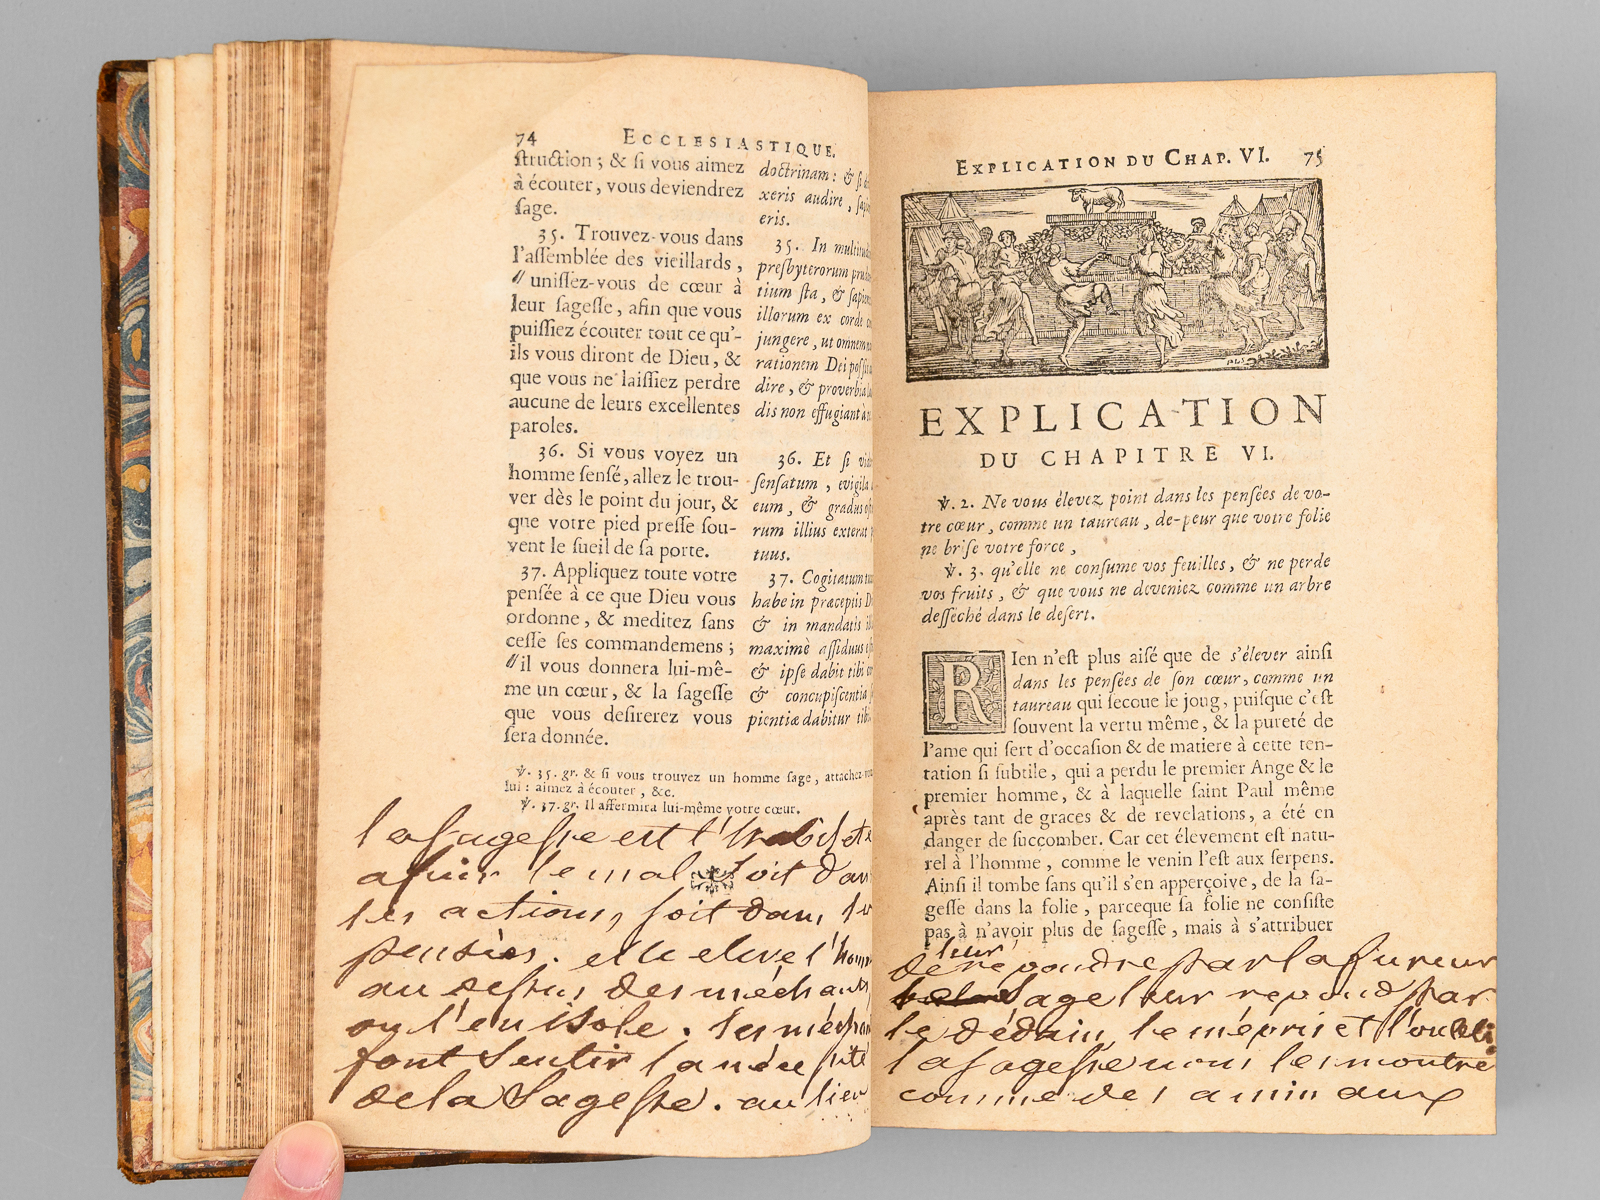 74 ECCLESIASTIQUE.
ſtruction; & ſi vous aimez
à écouter, vous deviendrez
ſage.
35. Trouvez-vous dans
l'aſſemblée des vieillards,
" uniſſez-vous de cœur à
leur ſageſſe, afin que vous
puiſſiez écouter tout ce qu'-
ils vous diront de Dieu, &
que vous ne laiſſiez perdre
aucune de leurs excellentes
paroles.
36. Si vous voyez un
homme ſenſé, allez le trou-
ver dès le point du jour, &
que votre pied preſſe ſou-
vent le ſueil de ſa porte.
37. Appliquez toute votre
penſée à ce que Dieu vous
ordonne, & meditez ſans
ceſſe ſes commandemens;
"il vous donnera lui-mê-
me un cœur, & la ſageſſe
que vous deſirerez vous
ſera donnée.
doctrinam: & ſi
xeris audire,
eris.
35. In
presbyterorum
tium ſta, &
illorum ex corde
jungere, ut omnem
rationem Dei
dire, &
dis non effugiant à
36. Et ſi
ſenſatum, evigila
eum, & gradus
rum illius exterat
tuus.
37. Cogitatum
habe in præceptis
& in mandatis
maximè aſſiduus
& ipſe dabit tibi
& concupiſcentia
pientiæ dabitur
℣. 35. gr. & ſi vous trouvez un homme ſage,
lui: aimez à écouter, &c.
℣. 37. gr. Il affermira lui-même votre cœur.
la ſageſſe est l'
a fuir le mal Soit dan
les actions, ſoit dans
penſées. elle eleve l'hom
au deſſus des méchants
ou l'en isole. les
font Sentir la
de la Sageſſe. au lieu
EXPLICATION DU CHAP. VI. 75
EXPLICATION
DU CHAPITRE VI.
℣. 2. Ne vous élevez point dans les penſées de vo-
tre cœur, comme un taureau, de-peur que votre folie
ne briſe votre force,
℣. 3. qu'elle ne conſume vos feuilles, & ne perde
vos fruits, & que vous ne deveniez comme un arbre
deſſéché dans le deſert.
RIen n'eſt plus aiſé que de s'élever ainſi
dans les penſées de ſon cœur, comme un
taureau qui ſecoue le joug, puiſque c'eſt
ſouvent la vertu même, & la pureté de
l'ame qui ſert d'occaſion & de matiere à cette ten-
tation ſi ſubtile, qui a perdu le premier Ange & le
premier homme, & à laquelle ſaint Paul même
après tant de graces & de revelations, a été en
danger de ſuccomber. Car cet élevement eſt natu-
rel à l'homme, comme le venin l'eſt aux ſerpens.
Ainſi il tombe ſans qu'il s'en apperçoive, de la ſa-
geſſe dans la folie, parceque ſa folie ne conſiſte
pas à n'avoir plus de ſageſſe, mais à s'attribuer
leur
de répondre par la fureur
Sage leur repond par
le dédain, le mépris et l'oubli
la ſageſſe nous les montre
comme des a min aux